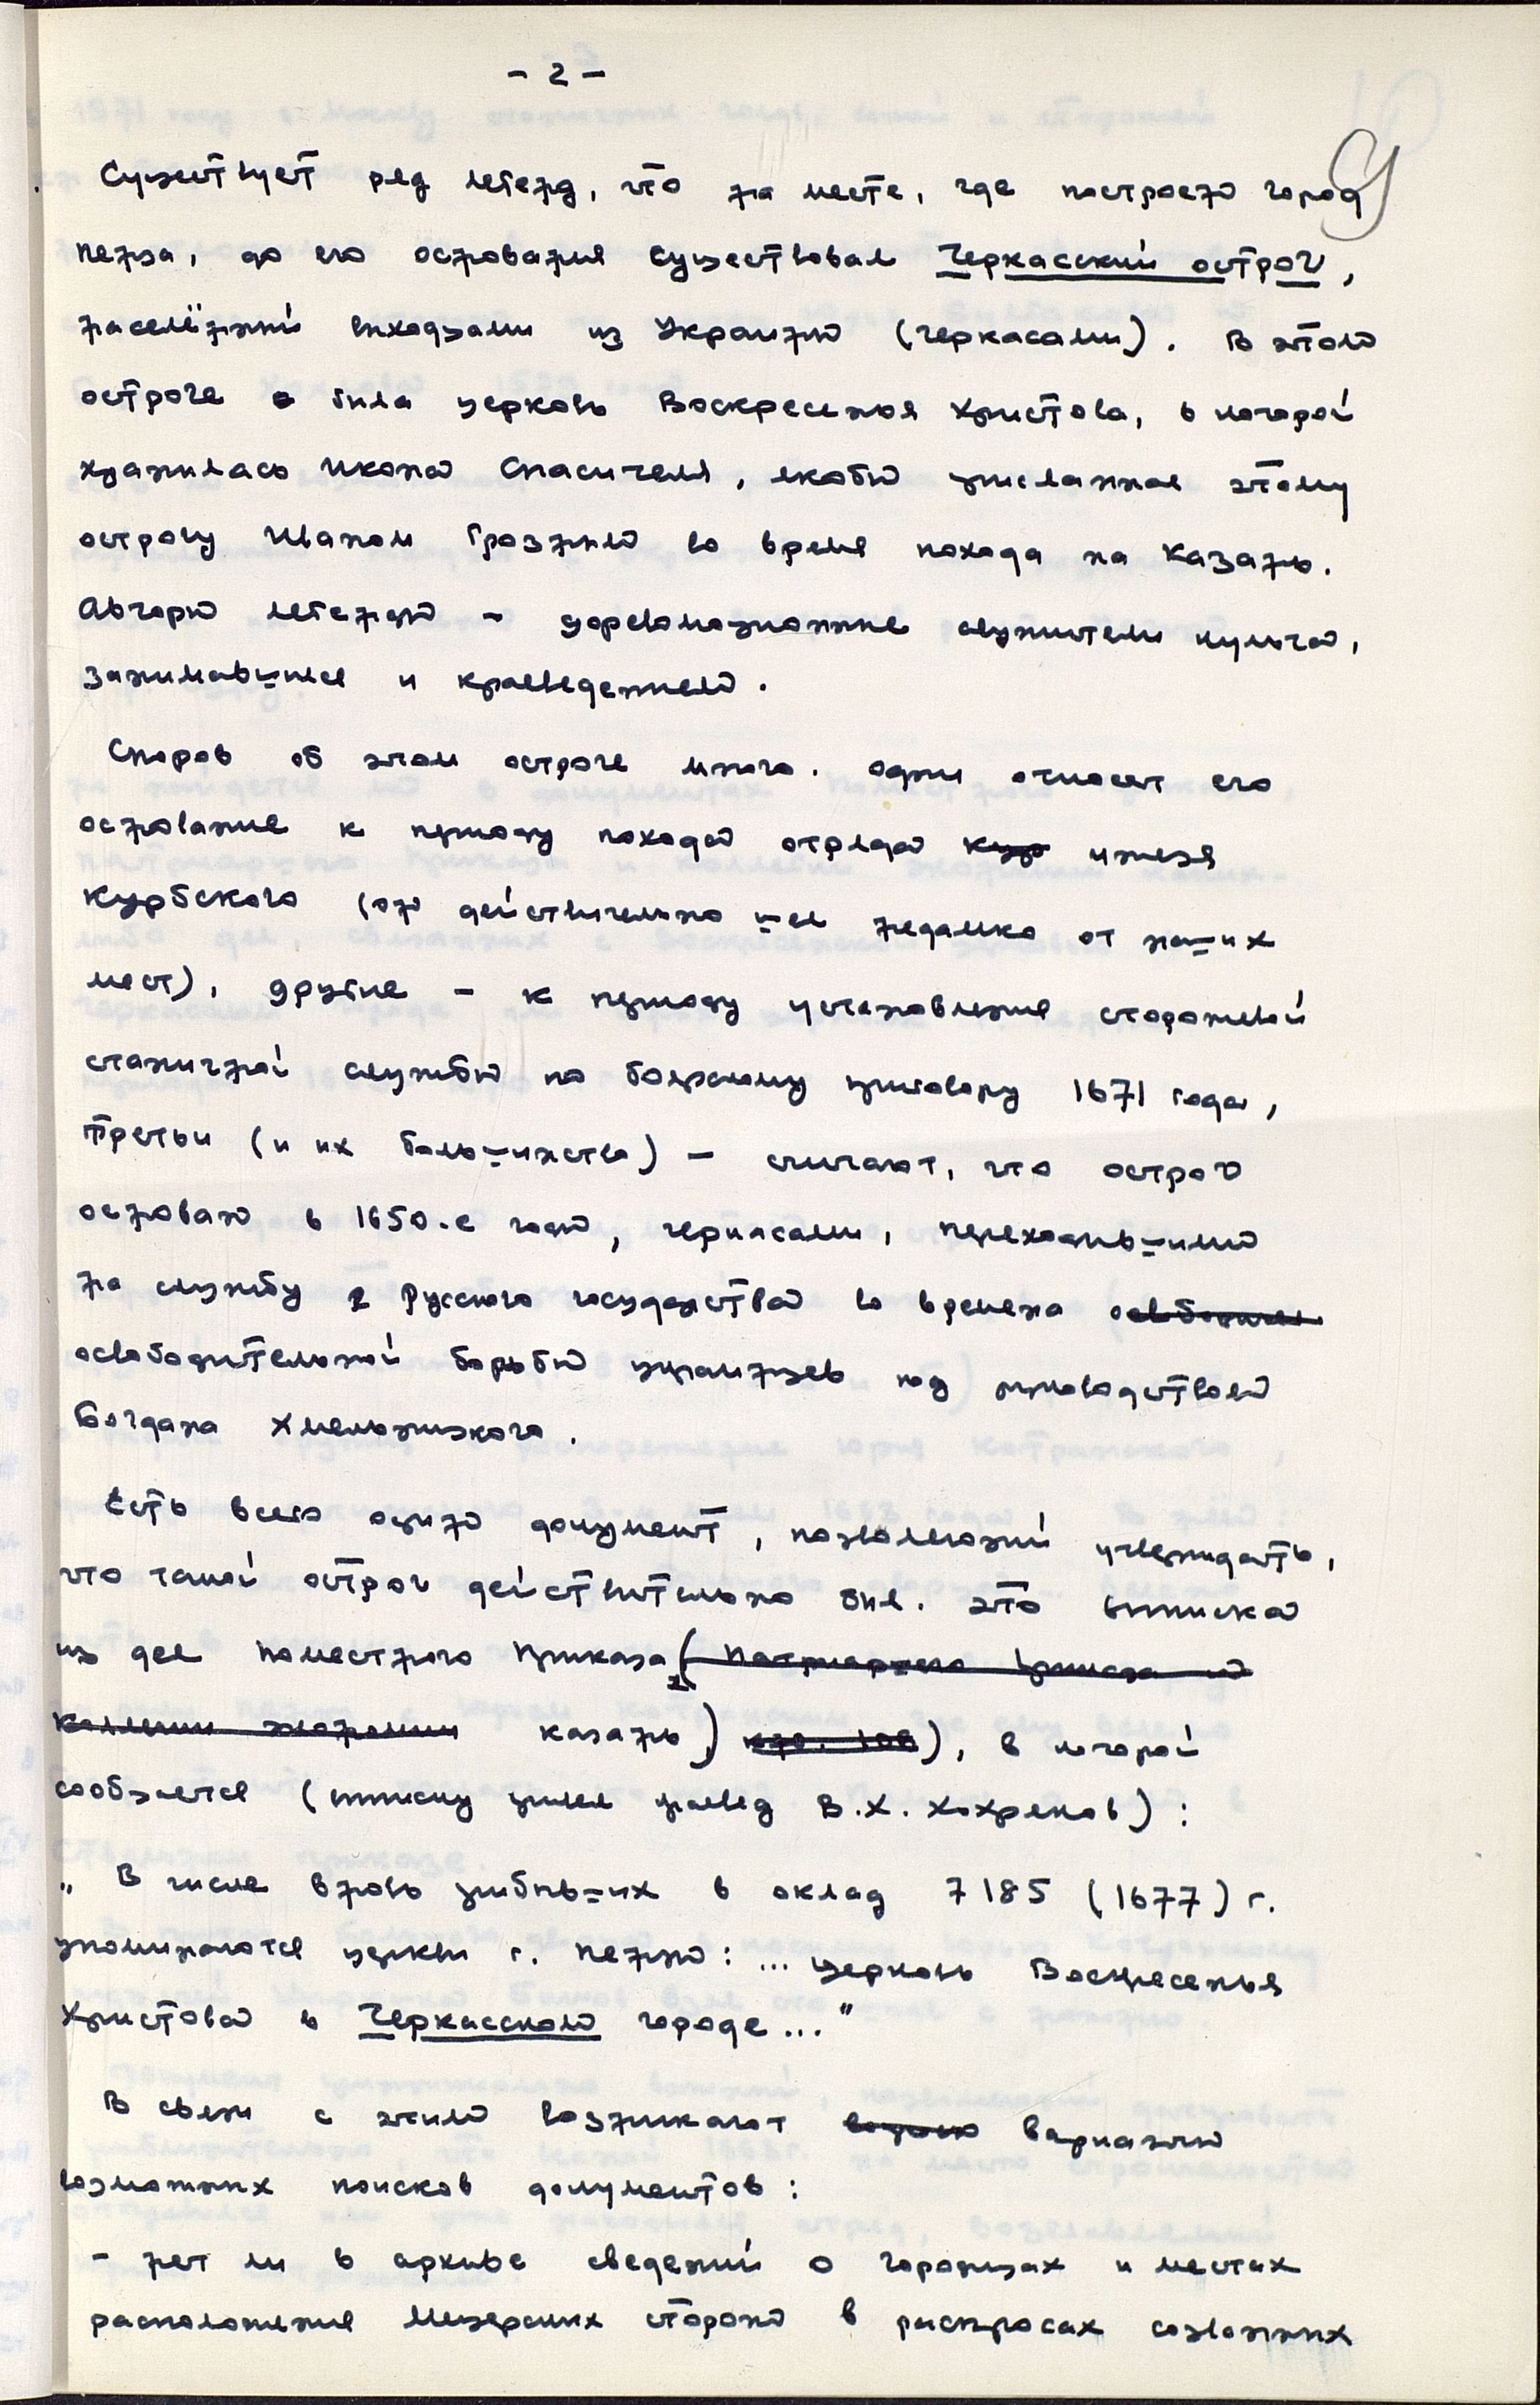 - 2 -
9
Существует ряд легенд, что на месте, где построен город
Пенза, до его основания существовал Черкасский острог,
населённый выходцами из Украины (черкасами). В этом
остроге была церковь Воскресения Христова, в которой
хранилась икона Спасителя, якобы присланная этому
острогу Иваном Грозным во время похода на Казань.
Авторы легенды - дореволюционные служители культа,
занимавшиеся и краеведением.
Споров об этом остроге много. Одни относят его
основание к приходу похода отряда князя
Курбского (он действительно шел недалеко от наших
мест), другие - к периоду установления сторожевой
станичной службы по боярскому приговору 1671 года,
третьи (и их большинство) - считают, что острог
основан в 1650-е годы, черкасами, переходившими
на службу Русского государства во времена
освободительной борьбы украинцев под руководством
Богдана Хмельницкого.
Есть всего один документ, позволяющий утверждать,
что такой острог действительно был. Это выписка
из дел Поместного Приказа (Патриаршего Приказа и
Коллегии экономии Казань) кн. 108), в которой
сообщается (выписку привел краевед В.Х. Хохряков):
„В числе вновь прибывших в оклад 7185 (1677) г.
упоминаются церкви г. Пензы: ... церковь Воскресенья
Христова в Черкасском городе..."
В связи с этим возникают варианты
возможных поисков документов:
- нет ли в архиве сведений о городищах и местах
расположения Мещерских сторож в расспросах созванных